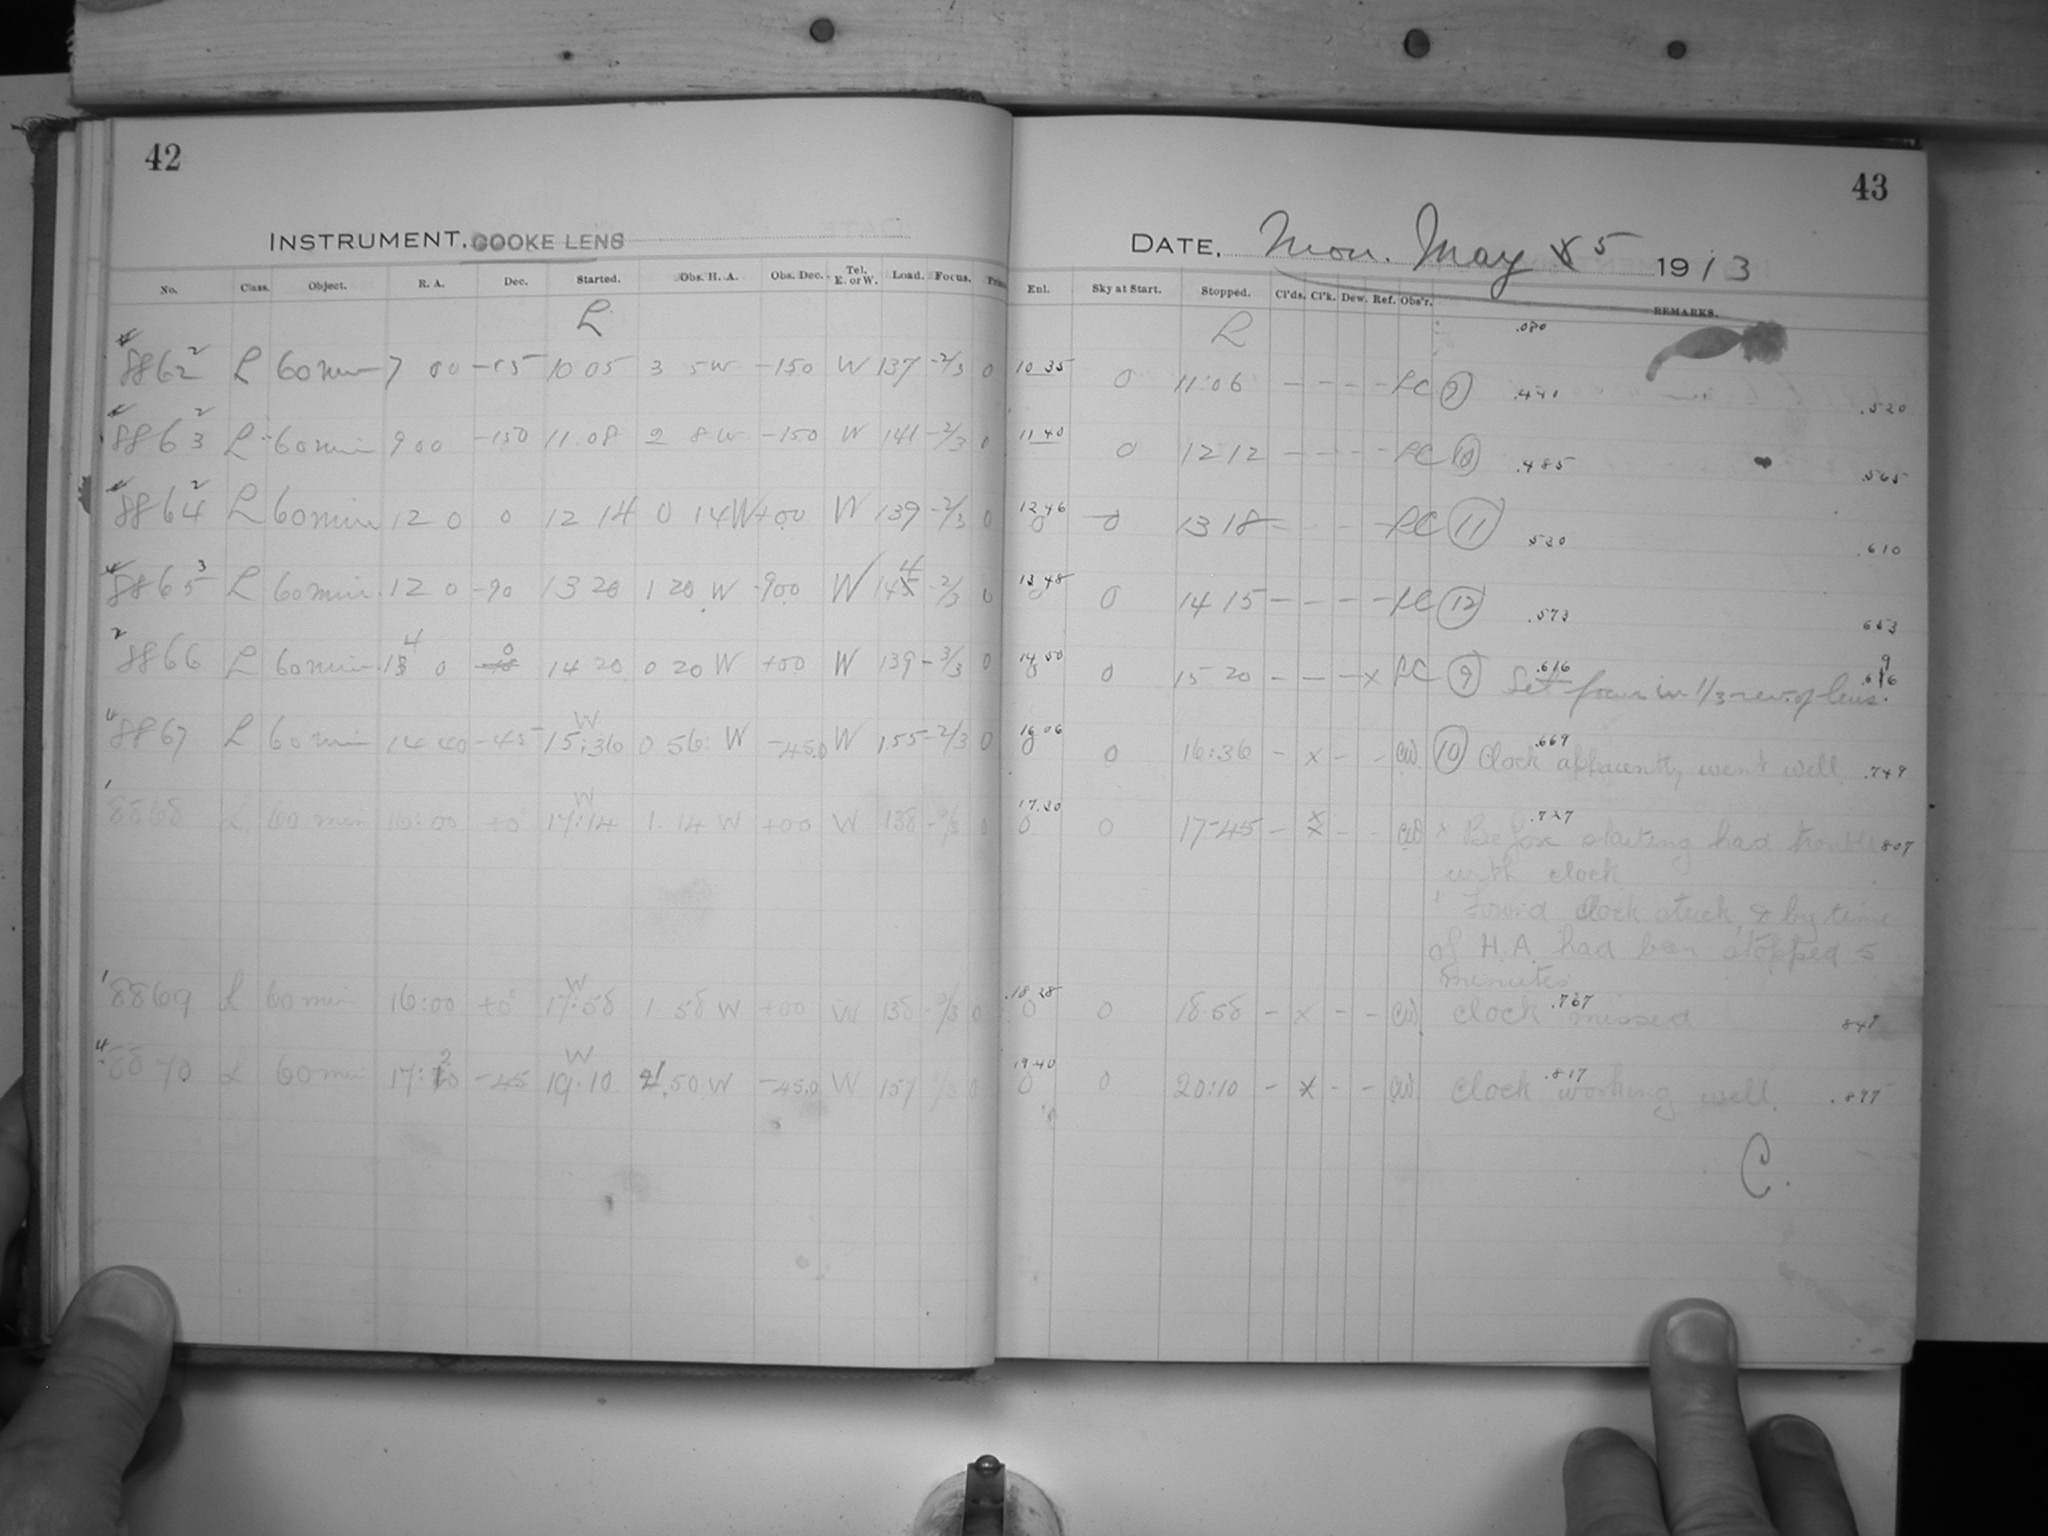 42
INSTRUMENT. COOKE LENS
No. Class. Object. R. A. Dec. Started. Obs. H. A. Obs. Dec. Tel. E. or W. Load. Focus.
L
8862 2 L 60 min 7 00 -15 10 05 3 5 W -150 W 137 -2/3 0
8863 2 L 60 min 9 00 -150 11.08 2 8 W -150 W 141 -2/3 0
8864 2 L 60 min 12 0 0 12 14 0 14 W +00 W 139 -2/3 0
8865 3 L 60 min. 12 0 -90 13 20 1 20 W -900 W 144 -2/3 0
2 8866 L 60 min 14 0 0 14 20 0 20 W +00 W 139 -3/3 0
4 8867 L 60 min 14 40 -45 15:36 W 0 56: W -45.0 W 155 -2/3 0
1 8868 L 60 min 16:00 +0° 17:14 W 1. 14 W +00 W 138 -2/3 0
1 8869 L 60 min 16:00 +0° 17:58 W 1. 58 W +00 W 138 -2/3 0
4 8870 L 60 min 17:20 -45 19.10 W .50 W -45.0 W 157 0
43
DATE. Mon. May 5 1913
Enl. Sky at Start. Stopped. Cl'ds. Cl'k. Dew. Ref. Obs'r. REMARKS.
L .080
10 35 0 11:06 - - - - LC 9 .440 .520
11 40 0 12 12 - - - - LC 10 .485 .565
12 46 0 0 13 18 - - - - LC 11 .530 .610
13 48 0 0 14 15 - - - - LC 12 .573 653
14 50 0 0 15 20 - - - x LC 9 .616 Set focus in 1/3 rev. of lens. .696
16 06 0 0 16:36 - x - - CW. 10 .669 Clock apparently went well .749
17.20 0 0 17-45 - x x - - CW x .727 Before starting had trouble 807
with clock
x Found clock stuck, & by time
of H.A. had been stopped 5
minutes
.18 28 0 0 18.58 - x - - CW. clock .767 missed 847
19.40 0 0 20:10 - x - - CW. clock .817 working well. .897
C.